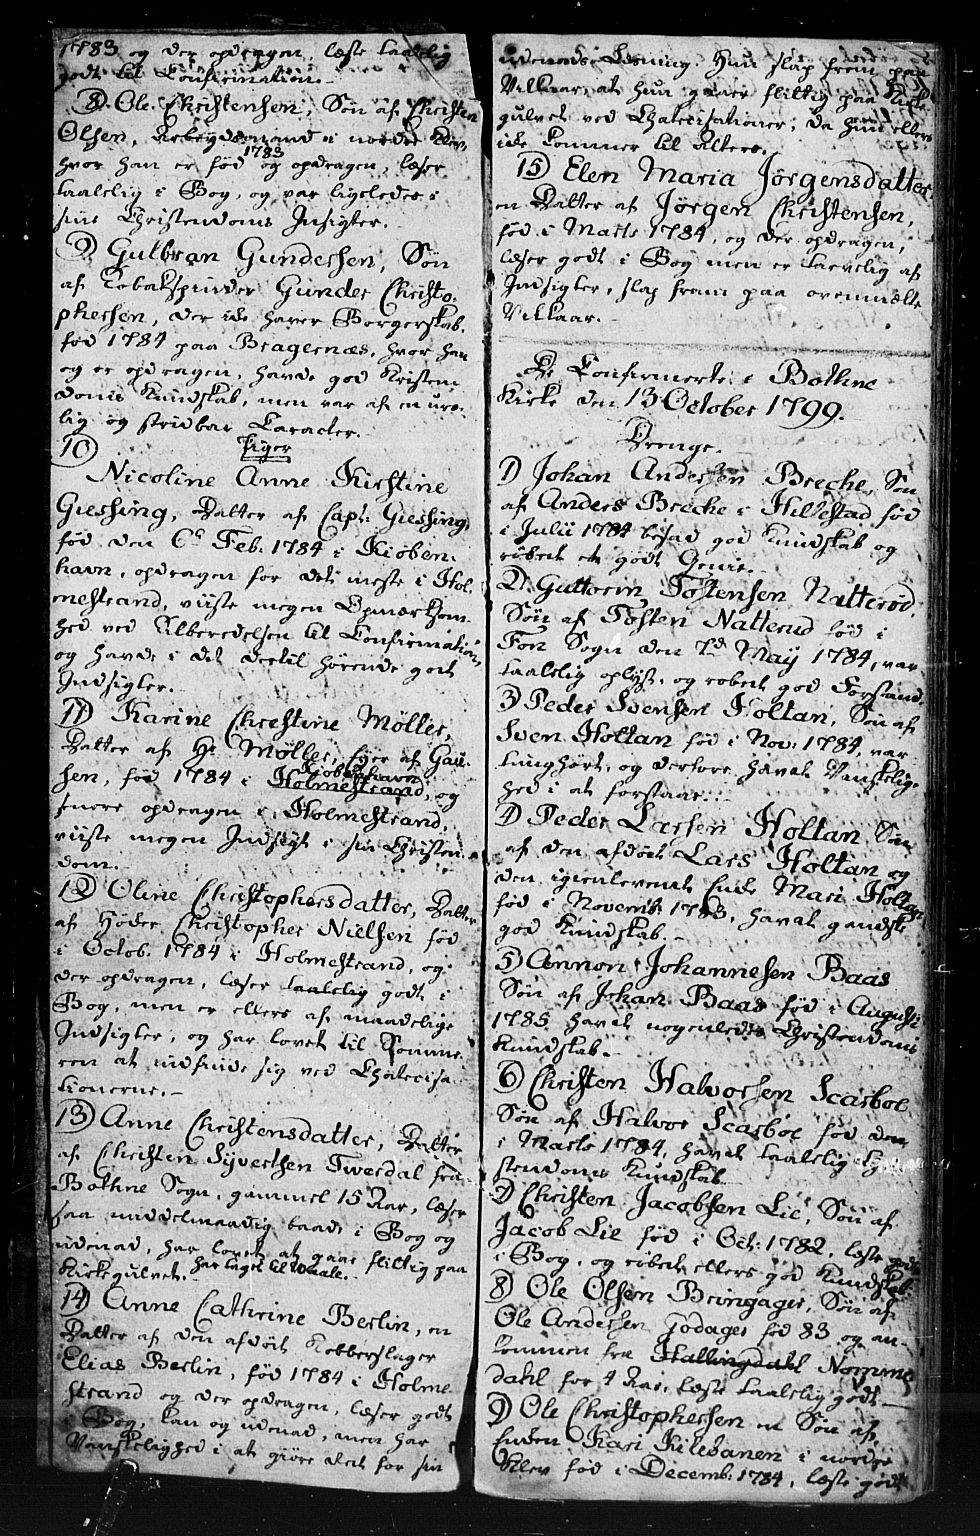 1783 og der opdragen, læste taalelig
godt til Confirmation.
8. Ole Christensen, Søn af Christen
Olsen, Arbeydsmand i nordre Klev,
hvor han er fød 1783 og opdragen, læser
taalelig i Bog, og var ligeledes i
sin Christendoms Indsigter.
9. Gulbran Gundersen, Søn
af Tobakspinder Gunder Christo-
phersen, der ide haver Borgerskab.
fød 1784 paa Bragernæs, hvor han
og er opdragen, havde god Kristen
doms Kundskab, men var af en uro-
lig og stridbar Caracter.
10) Piger
Nicoline Anne Kirstine
Giessing, Datter af Capt: Giessing,
fød den 6te Feb: 1784 i Kiøben-
havn, opdragen for det meste i Hol-
mestrand, viiste megen Opmærksom-
hed ved Alberedelsen til Confirmation,
og havde i det dertil hørende godt
Indsigter.
11) Karine Christine Møller,
Datter af Hr Møller, Eyer af Gau-
sen, fød 1784 i Holmestrand Kiøbenhavn, og
senere opdragen i Holmestrand,
viiste megen Indsigt i sin Christen
dom.
12) Oline Christophersdatter, Datter
af Høder Christopher Nielsen fød
i Octob. 1784 i Holmestrand, og
der opdragen, læser taalelig godt i
Bog, men er ellers af maadelige
Indsigter, og har lovet til Somme
ren at indfinde sig ved Chatecisa
tionerne.
13) Anne Christensdatter, Datter
af Christen Syvertsen Tverdal fra
Bothne Sogn, gammel 15 Aar, læser
saa middelmaadig baade i Bog og
udenad, har lovet at gaae flittig paa
Kirkegulvet.
14) Anne Cathrine Berlin, en
Datter af den afdøde Kobberslager
Elias Berlin, fød 1784 i Holme
strand og der opdragen, læser godt
i Bog, kan og udenad, men har
Vanskelighed i at giøre Rede for sin
udenads Læsning. Hun slap frem paa
Vilkaar, at hun gaaer flittig paa Kirke
gulvet ved Chatecisationer, da hun ellers
ide kommer til Alters.
15) Elen Maria Jørgensdatter
en Datter af Jørgen Christensen,
fød i Marts 1784, og der opdragen,
læser godt i Bog men er taavelig af
Indsigter, slap frem paa ovenmelte
Vilkaar.
De Confirmerte i Bothne
Kirke den 13 October 1799.
Drenge.
1) Johan Andersen Breche, Søn
af Anders Breche i Hillestad fød
i Julii 1784 besad god Kundskab og
røbede et godt Genie.
2. Guttorm Tostensen Natterød,
Søn af Tosten Natterud fød i
Fon Sogn den 7d May 1784, var
taalelig oplyst, og robede god Forstand.
3) Peder Svensen Holtan, Søn af
Sven Holtan fød i Nov: 1784, var
tunghørt, og derfore havde Vanskelig-
hed i at forstaae.
4) Peder Larsen Holtan Søn
af den afdøde Lars Holtan og
den igienlevende Enke Mari Holtan
fød i Novemb: 1783, havde gandske
god Kundskab.
5) Annon Johannesen Baas
Søn af Johan Baas fød i Augusti
1785 havde nogenledes Christendoms
Kundskab.
6) Christen Halvorsen Scarboe
Søn af Halvor Scarboe fød den
i Marts 1784, havde taalelig Chri-
stendoms Kundskab
7) Christen Jacobsen Lie, Søn af
Jacob Lie fød i Oct: 1782, læste godt
i Bog, og røbede ellers god Kundskab.
8) Ole Olsen Bringager, Søn af
Ole Andersen Jodager fød 83 og an-
kommen fra Hallingdahl Numme
dahl for 4 Aar, læste taalelig godt
9) Ole Christophersen en Søn af
Enken Kari Kilebanen i nordre
Klev fød i Decemb: 1784, læste godt